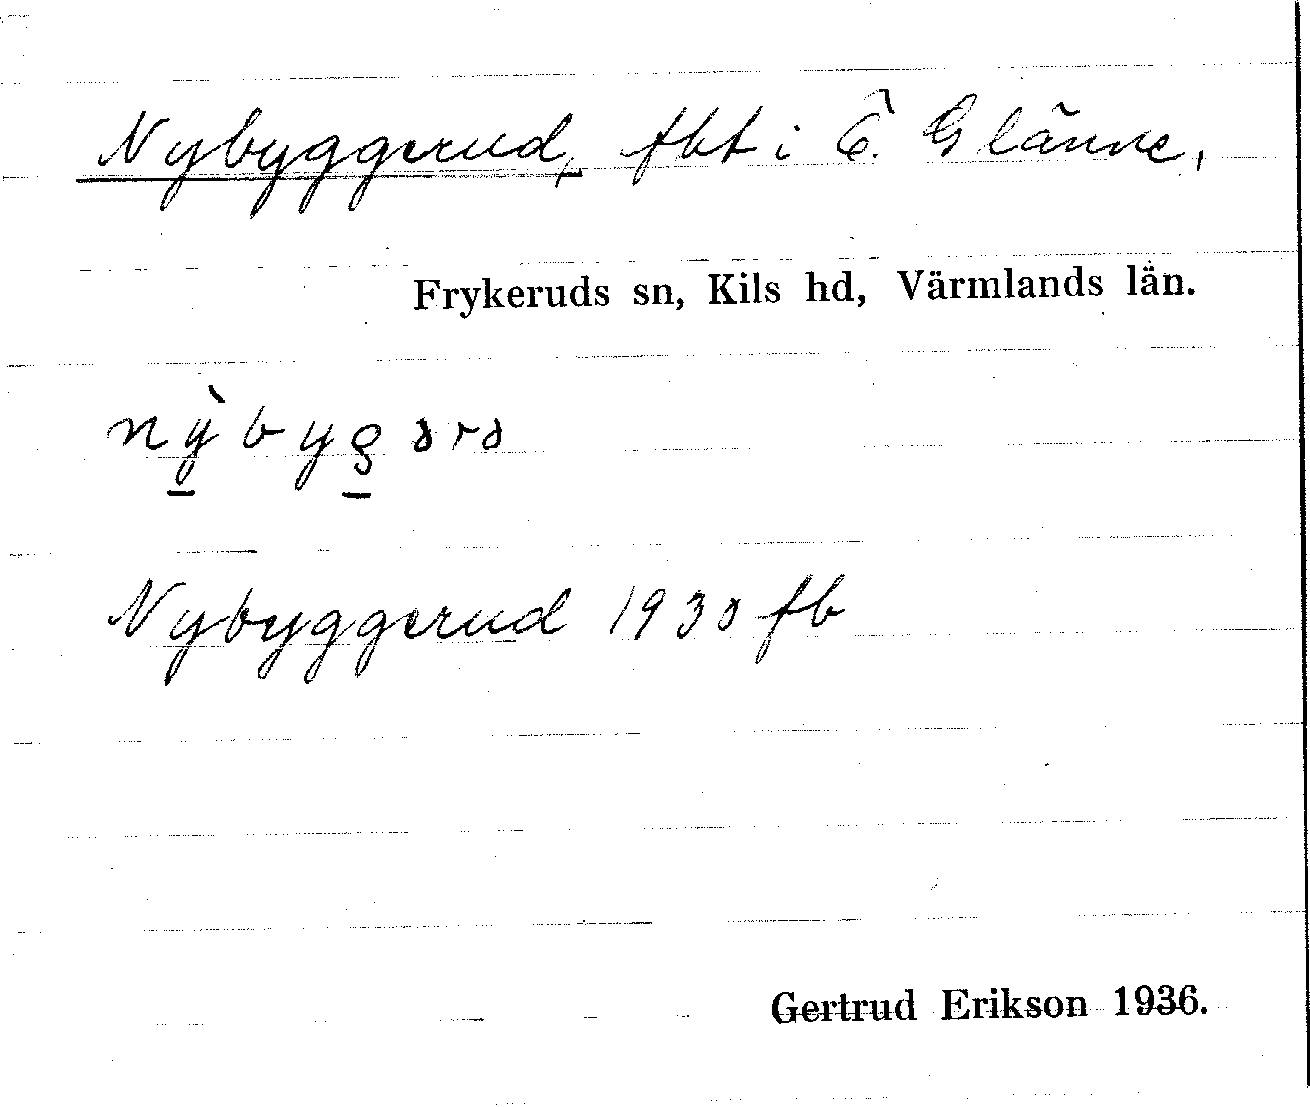 Nybyggerud, fbt i Ö. Glänne,
Frykeruds sn, Kils hd, Värmlands län.
nỳbygərə
Nybyggerud 1930 fb
Gertrud Erikson 1936.